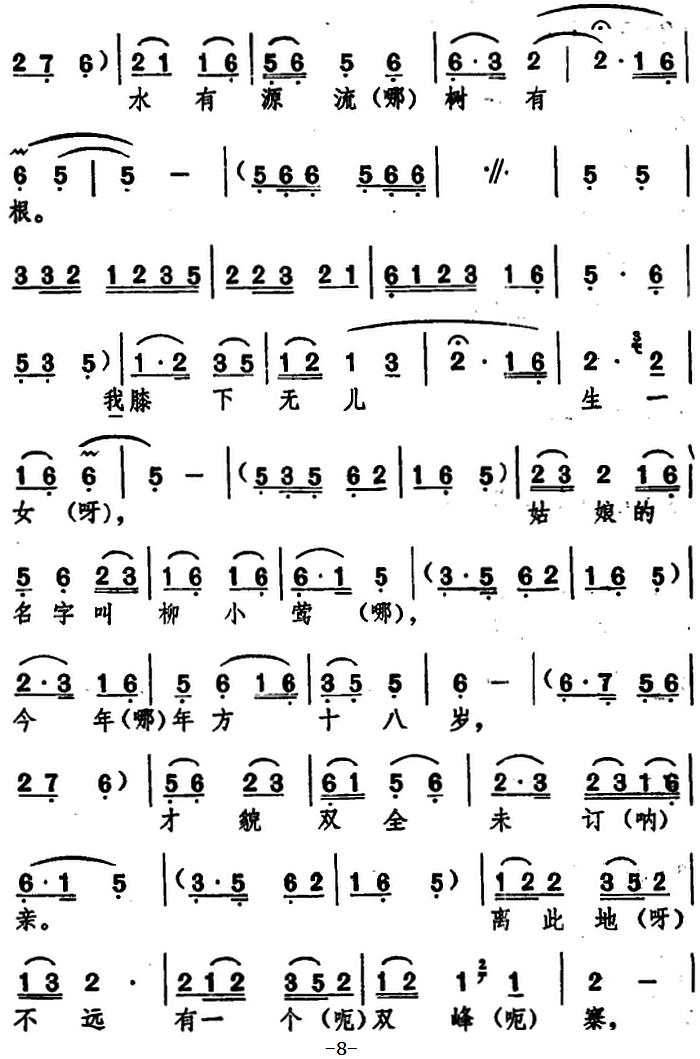 2 7 6) | 2 1 1 6 | 5 6 5 6 | 6·3 2 | 2·1 6 |
水 有 源 流(哪) 树 有
6 5 | 5 — | (5 6 6 5 6 6 | ·//· | 5 5 |
根。
3 3 2 1 2 3 5 | 2 2 3 2 1 | 6 1 2 3 1 6 | 5 · 6 |
5 3 5) | 1·2 3 5 | 1 2 1 3 | 2·1 6 | 2· 2 |
我膝 下 无 儿 生 一
1 6 6 | 5 — | (5 3 5 6 2 | 1 6 5) | 2 3 2 1 6 |
女 (呀), 姑 娘 的
5 6 2 3 | 1 6 1 6 | 6·1 5 | (3·5 6 2 | 1 6 5) |
名 字 叫 柳 小 莺 (哪),
2·3 1 6 | 5 6 1 6 | 3 5 5 | 6 — | (6·7 5 6 |
今 年(哪)年 方 十 八 岁,
2 7 6) | 5 6 2 3 | 6 1 5 6 | 2·3 2 3 1 6 |
才 貌 双 全 未 订 (呐)
6·1 5 | (3·5 6 2 | 1 6 5) | 1 2 2 3 5 2 |
亲。 离 此 地 (呀)
1 3 2 · | 2 1 2 3 5 2 | 1 2 1 1 | 2 — |
不 远 有一 个 (呃)双 峰 (呃) 寨,
-8-